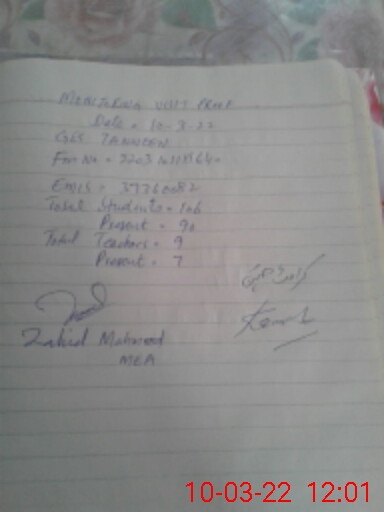 MONITORING VISIT PROOF
Date = 10-3-22
GGS
Form No =
EMIS = 37260082
Total Students = 106
Present = 90
Total Teachers = 9
Present = 7
Zahid Mahmood
MEA
10-03-22 12:01